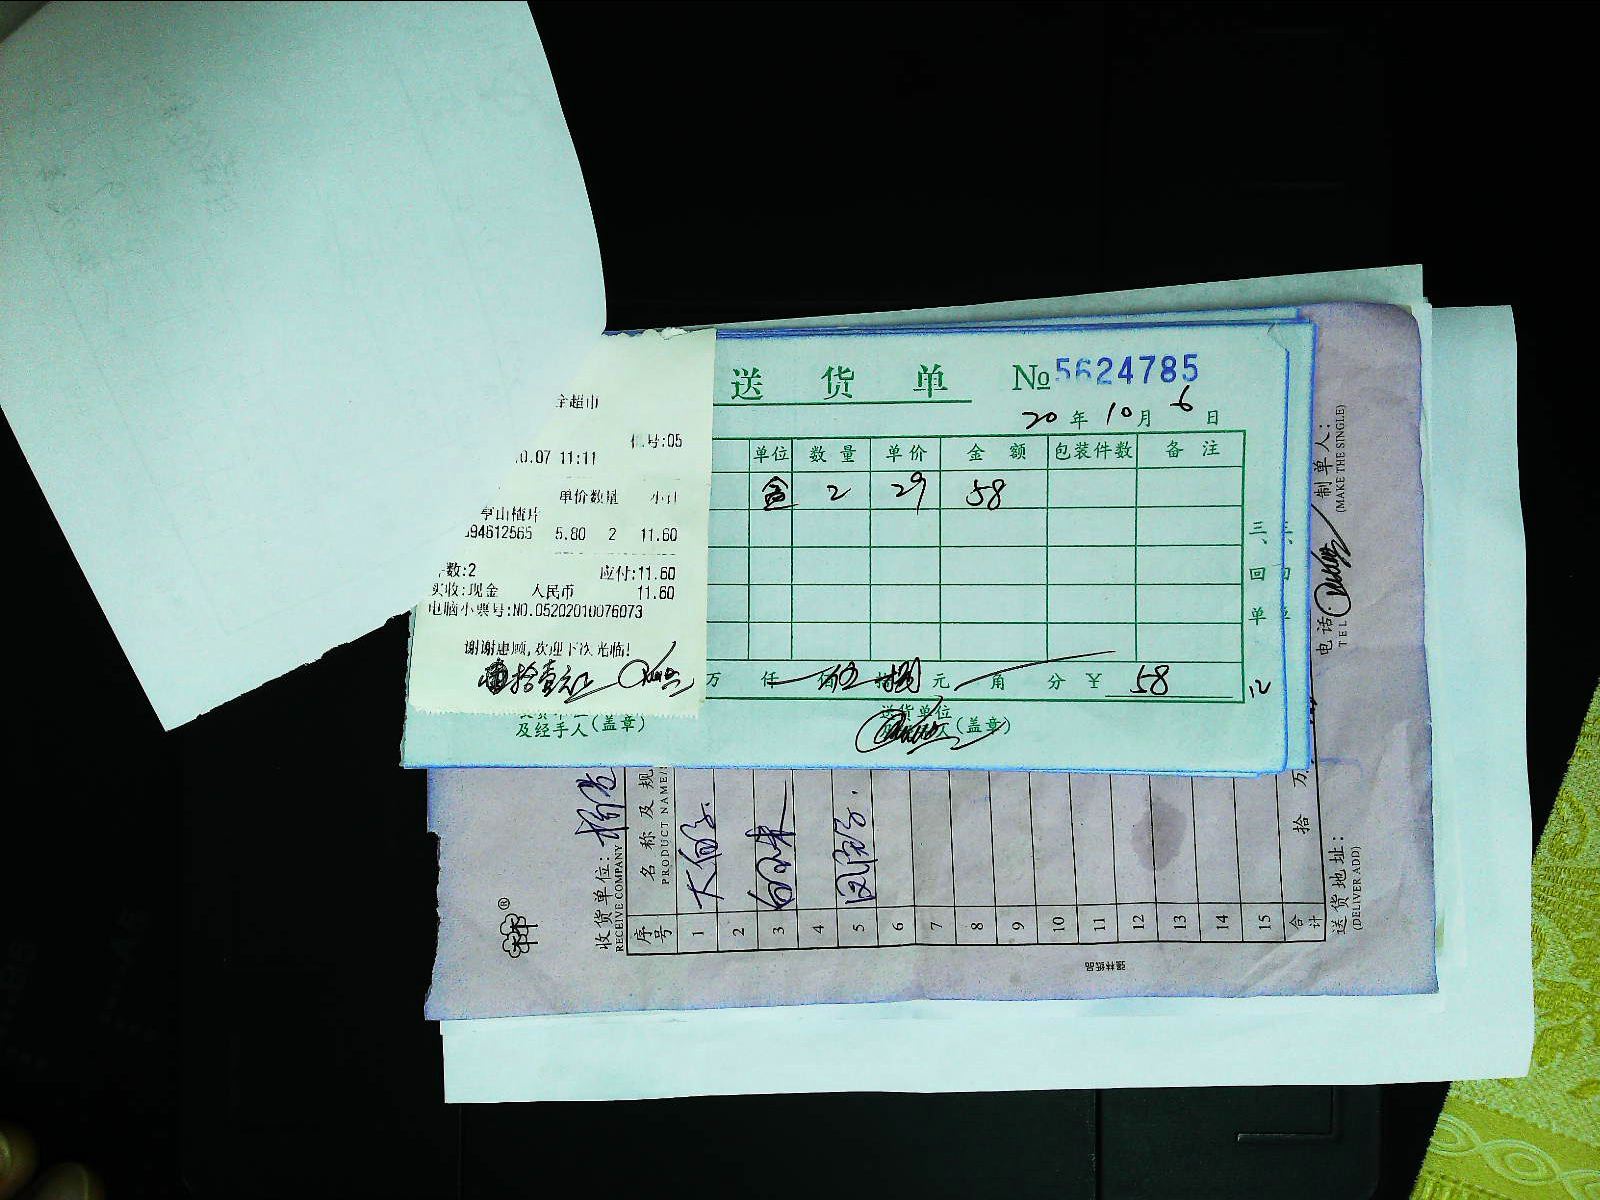 全超市
号:05
.07 11:11
单价数量 小计
山楂片
94612565 5.80 2 11.60
数:2 应付:11.60
实收:现金 人民币 11.60
电脑小票号:NO.05202010076073
谢谢惠顾,欢迎下次光临!
拾壹元
送货单 №5624785
20年10月6日
单位 数量 单价 金额 包装件数 备注
盒 2 29 58
万 仟 佰 伍拾捌元 角 分 ¥ 58
及经手人(盖章)
送货单位
人(盖章)
三、回单
收货单位:
RECEIVE COMPANY
序号 名称及规
PRODUCT NAME/
1
2
3
4
5
6
7
8
9
10
11
12
13
14
15
合计 拾 万
送货地址:
(DELIVER ADD)
电话
TEL
制单人:
(MAKE THE SINGLE)
强林纸品